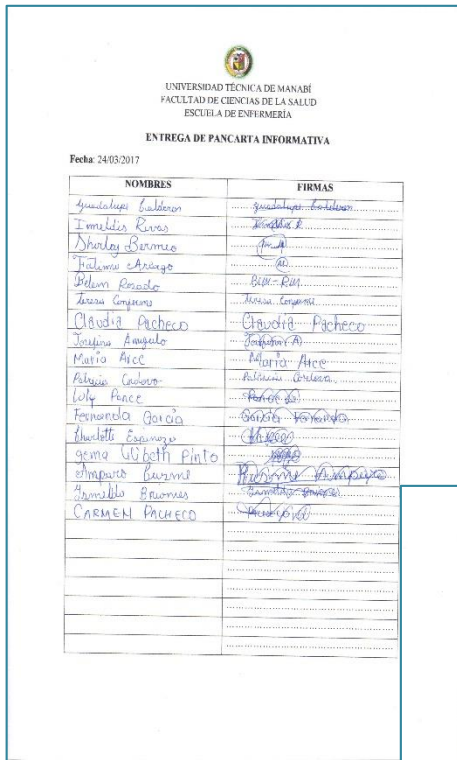 UNIVERSIDAD TÉCNICA DE MANABÍ
FACULTAD DE CIENCIAS DE LA SALUD
ESCUELA DE ENFERMERÍA
ENTREGA DE PANCARTA INFORMATIVA
Fecha: 24/03/2017
NOMBRES FIRMAS
Guadalupe Calderon Guadalupe Calderon
Imeldis Rivas
Shirley Bermeo
Fatima
Belem Rosado
Teresa Conforme Teresa Conforme
Claudia Pacheco Claudia Pacheco
Josefina Angulo Josefina A
Maria Arce Maria Arce
Patricia Cordova Patricia Cordova
Lily Ponce Ponce
Fernanda Garcia Garcia Fernanda
Charlotte Espinoza
Gema Lilibeth Pinto
Amparo
Briones
CARMEN PACHECO